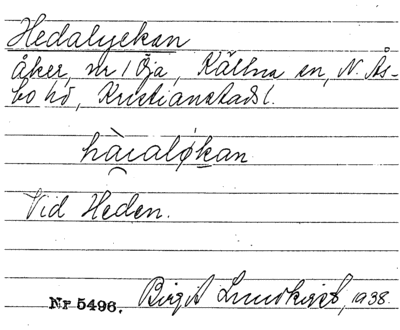 Hedalyckan
åker, nr 1 Öja, Källna sn, N. Ås-
bo hd, Kristianstads l.
hàıaløkan
Vid Heden.
Nr 5496. Birgit Lundkvist, 1938.